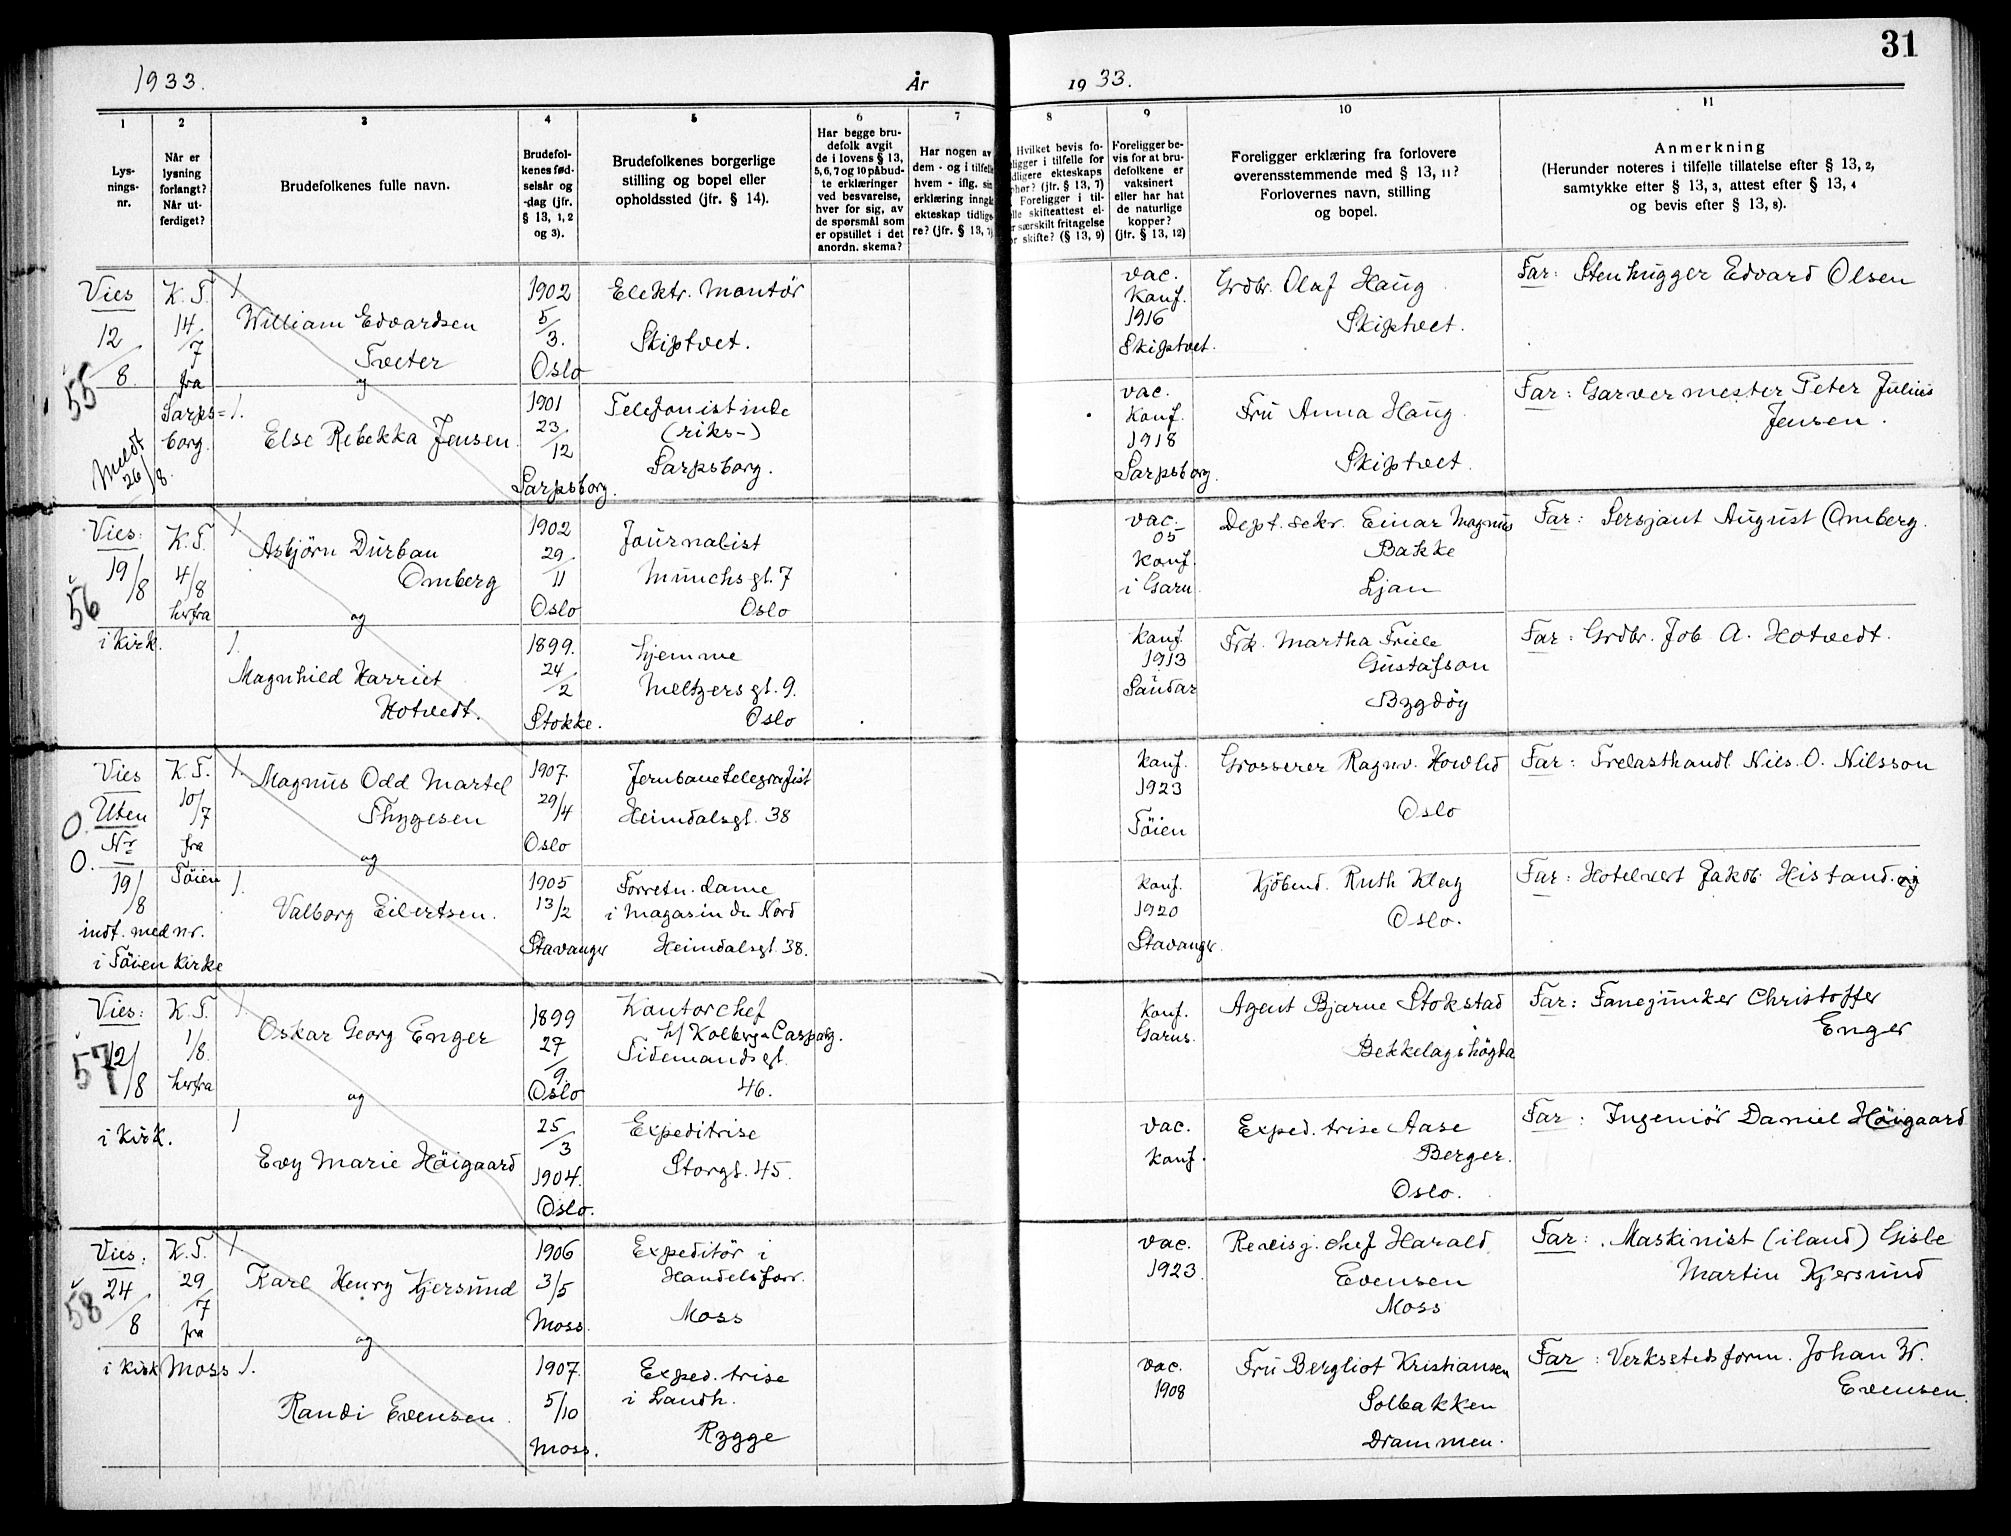 31
1933. År 1933.
1 2 3 4 5 6 7 8 9 10 11
Lys-
nings-
nr.
Når er
lysning
forlangt?
Når ut-
ferdiget?
Brudefolkenes fulle navn.
Brudefol-
kenes fød-
selsår og
-dag (jfr.
§ 13, 1, 2
og 3).
Brudefolkenes borgerlige
stilling og bopel eller
opholdssted (jfr. § 14).
Har begge bru-
defolk avgit
de i lovens § 13,
5, 6, 7 og 10 påbud-
te erklæringer
ved besvarelse,
hver for sig, av
de spørsmål som
er opstillet i det
anordn. skema?
Har nogen av
dem - og i tilfelle
hvem - iflg. sin
erklæring inngå
ekteskap tidlige
re? (jfr. § 13, 7)
Hvilket bevis fo-
ligger i tilfelle for
dligere ekteskaps
phør? (jfr. § 13, 7)
Foreligger i til-
lle skifteattest el-
r særskilt fritagelse
or skifte? (§ 13, 9)
Foreligger be-
vis for at bru-
defolkene er
vaksinert
eller har hat
de naturlige
kopper?
(jfr. § 13, 12)
Foreligger erklæring fra forlovere
overensstemmende med § 13, 11?
Forlovernes navn, stilling
og bopel.
Anmerkning
(Herunder noteres i tilfelle tillatelse efter § 13, 2,
samtykke efter § 13, 3, attest efter § 13, 4
og bevis efter § 13, 8).
55
Vies
12/8.
Meldt
26/8.
K. T.
14/7
fra
Sarps=
borg.
1.
William Edvardsen
Tveter
og
1902
5/3.
Oslo
Elektr. Montör
Skiptvet.
vac.
Konf.
1916
Skiptvet.
Grdbr. Olaf Haug
Skiptvet.
Far: Stenhugger Edvard Olsen
1.
Else Rebekka Jensen.
1901
23/12
Sarpsborg.
Telefonistinde
(riks-)
Sarpsborg.
vac.
Konf.
1918
Sarpsborg.
Fru Anna Haug.
Skiptvet.
Far: Garvermester Peter Julius
Jensen.
56
Vies:
19/8
i Kirk.
K. T.
4/8
herfra
1
Asbjörn Durban
Omberg
og
1902
29/11
Oslo
Journalist
Munchsgt. 7
Oslo
vac.
05
Konf.
i Garn.
Dept. sekr. Einar Magnus
Bakke
Ljan
Far: Sersjant August Omberg.
1.
Magnhild Harriet
Hotvedt.
1899.
24/2
Stokke.
hjemme
Meltzersgt. 9.
Oslo
Konf.
1913
Sandar
Frk. Martha Friele
Gustafson
Bygdöy
Far: Grdbr. Job A. Hotvedt.
0.
0.
Vies
Uten
Nr
19/8
indf. med nr.
i Töien Kirke
K. T.
10/7
fra
Töien
1.
Magnus Odd Martel
Thygesen
og
1907.
29/4
Oslo
Jernbanetelegrafist
Heimdalsgt. 38
Konf.
1923
Töien
Grosserer Ragnv. Howlid
Oslo
Far: Trelasthandl Nils. O. Nilsson
1.
Valborg Eilertsen.
1905
13/2
Stavanger
Forretn. dame
i Magasin du Nord
Heimdalsgt. 38.
Konf.
1920
Stavanger.
Kjöbmd. Ruth Kley
Oslo.
Far: Hotelvert Jakob Histand
57
Vies:
12/8
i Kirk.
K. T.
1/8.
herfra
1
Oskar Georg Enger
og
1899
27/9
Oslo
Kontorchef
h/ Kolberg & Caspary.
Tidemandsgt.
46.
Konf.
Garns.
Agent Bjarne Stokstad
Bekkelagshögda
Far: Fanejunker Christoffer
Enger
1
Evy Marie Höigaard
25/3
1904.
Oslo.
Expeditrise
Storgt. 45.
vac.
Konf.
Exped. trise Aase
Berger.
Oslo.
Far: Ingeniör Daniel Höigaard
58
Vies:
24/8
i Kirk
K. T.
29/7
fra
Moss
1
Karl Henry Kjersund
og
1906
3/5
Moss.
Expeditör i
Handelsforr.
Moss
vac.
1923.
Revisj. chef Harald
Evensen
Moss
Far: Maskinist (iland) Gisle
Martin Kjersund
1.
Randi Evensen.
1907.
5/10
Moss.
Exped. trise
i Landh.
Rygge
vac.
1908
Fru Bergliot Kristiansen
Solbakken
Drammen.
Far: Verkstedsform. Johan W.
Evensen.